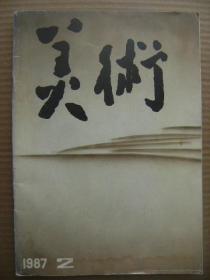 美術
1987 2